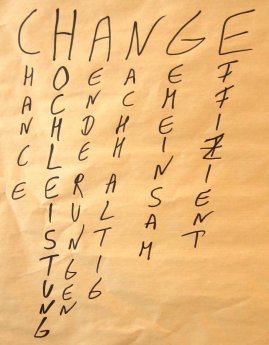 CHANGE
HANCE
OCHLEISTUNG
ENDERUNGEN
ACHHALTIG
EMEINSAM
FFIZIENT